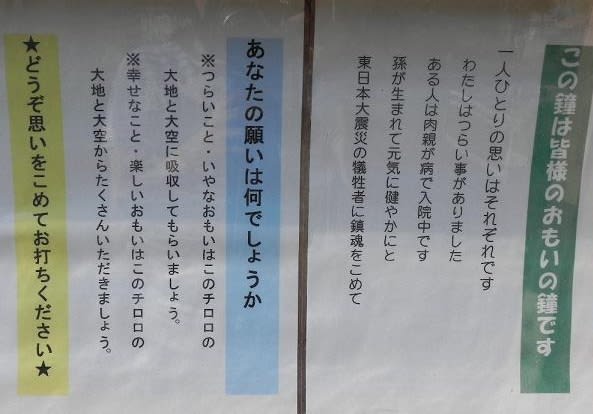 この鐘は皆様のおもいの鐘です
一人ひとりの思いはそれぞれです
わたしはつらい事がありました
ある人は肉親が病で入院中です
孫が生まれて元気に健やかにと
東日本大震災の犠牲者に鎮魂をこめて
あなたの願いは何でしょうか
※つらいこと・いやなおもいはこのチロロの
大地と大空に吸収してもらいましょう。
※幸せなこと・楽しいおもいはこのチロロの
大地と大空からたくさんいただきましょう。
★どうぞ思いをこめてお打ちください★